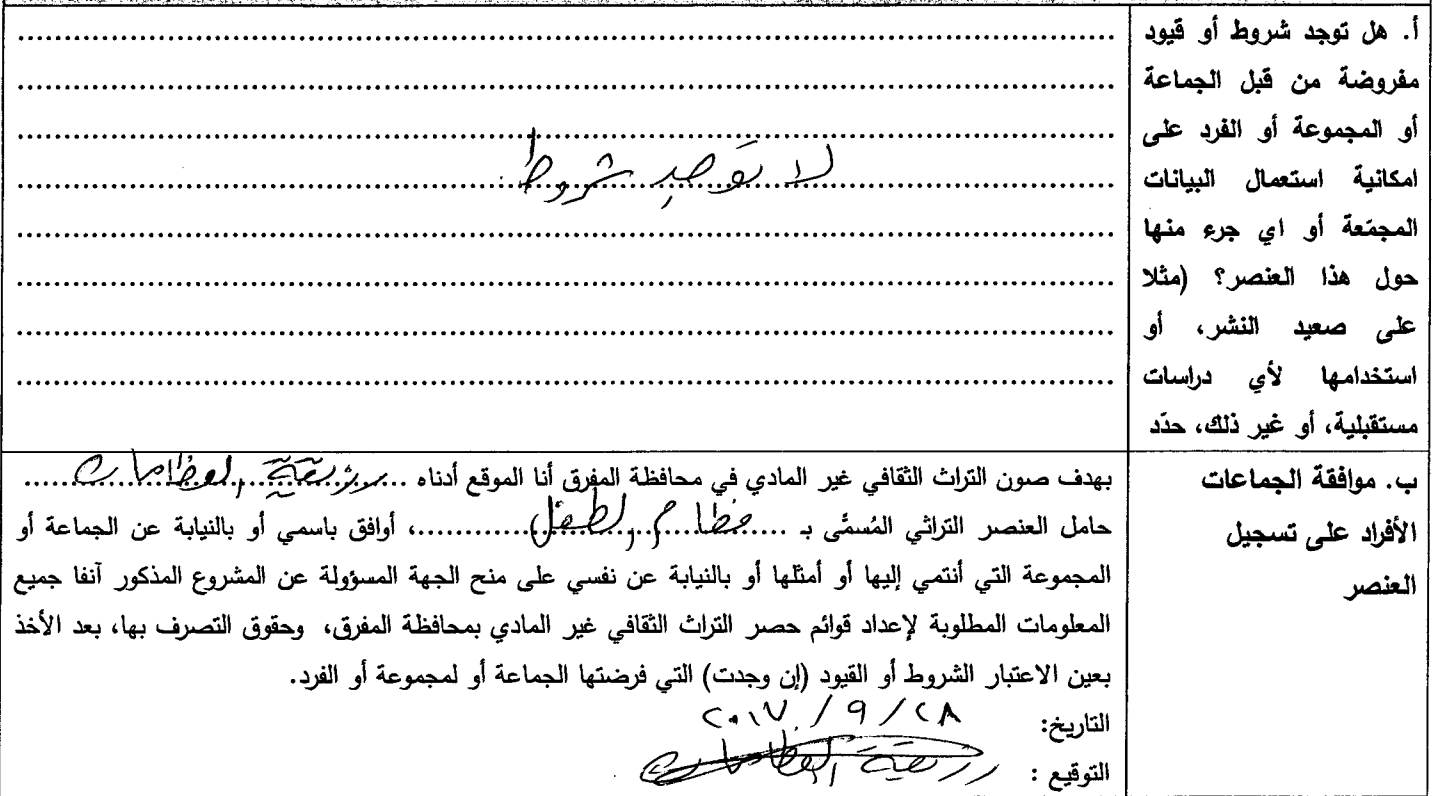 أ. هل توجد شروط أو قيود
مفروضة من قبل الجماعة
أو المجموعة أو الفرد على
امكانية استعمال البيانات
المجمّعة أو اي جرء منها
حول هذا العنصر؟ (مثلا
على صعيد النشر، أو
استخدامها لأي دراسات
مستقبلية، أو غير ذلك، حدّد
لا توجد شروط
ب. موافقة الجماعات
الأفراد على تسجيل
العنصر
بهدف صون التراث الثقافي غير المادي في محافظة المفرق أنا الموقع أدناه
حامل العنصر التراثي المُسمَّى بـ فطام الطفل، أوافق باسمي أو بالنيابة عن الجماعة أو
المجموعة التي أنتمي إليها أو أمثلها أو بالنيابة عن نفسي على منح الجهة المسؤولة عن المشروع المذكور آنفا جميع
المعلومات المطلوبة لإعداد قوائم حصر التراث الثقافي غير المادي بمحافظة المفرق، وحقوق التصرف بها، بعد الأخذ
بعين الاعتبار الشروط أو القيود (إن وجدت) التي فرضتها الجماعة أو لمجموعة أو الفرد.
التاريخ: ٢٨/٩/٢٠١٧
التوقيع :